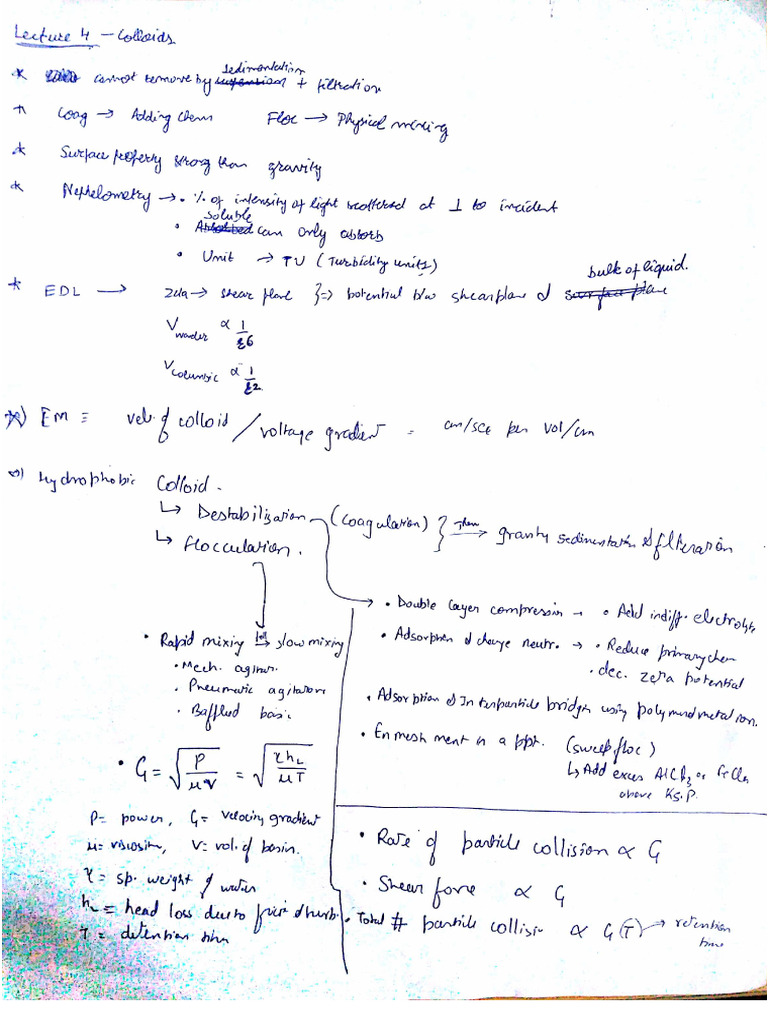 Lecture 4 - Colloids
* cannot remove by sedimentation + filtration
* Coag → Adding chem Floc → Physical mixing
* Surface property strong than gravity
* Nephelometry → • % of intensity of light scattered at ⊥ to incident
• Soluble can only absorb
• Unit → TU (Turbidity units)
* EDL → zeta → shear plane }⇒ potential b/w shear plane & bulk of liquid.
V wander ∝ 1/r6
V columbic ∝ 1/r2
*) EM = vel. of colloid / voltage gradient = cm/sec per vol/cm
Hydrophobic Colloid.
↳ Destabilization (coagulation) } Then → gravity sedimentation & filteration
↳ Flocculation.
• Rapid mixing → slow mixing
• Mech. agitan.
• Pneumatic agitation
• Baffled basin
• G = √(P/μV) = √(γhL/μT)
P = power, G = velocity gradient
μ = viscosity, V = vol. of basin.
γ = sp. weight of water
hL = head loss due to frict & turb.
T = detention time
• Double layer compression → • Add indiff. electrolyte
• Adsorption & charge neutr. → • Reduce primary chem
• dec. zeta potential
• Adsorption & Interparticle bridgin using polymer and metal ion.
• Enmeshment in a ppt. (sweep floc)
↳ Add excess AlCl3 or FeCl3
above Ks.P.
• Rate of particle collision ∝ G
• Shear force ∝ G
• Total # particle collision ∝ G(T) → retention
time